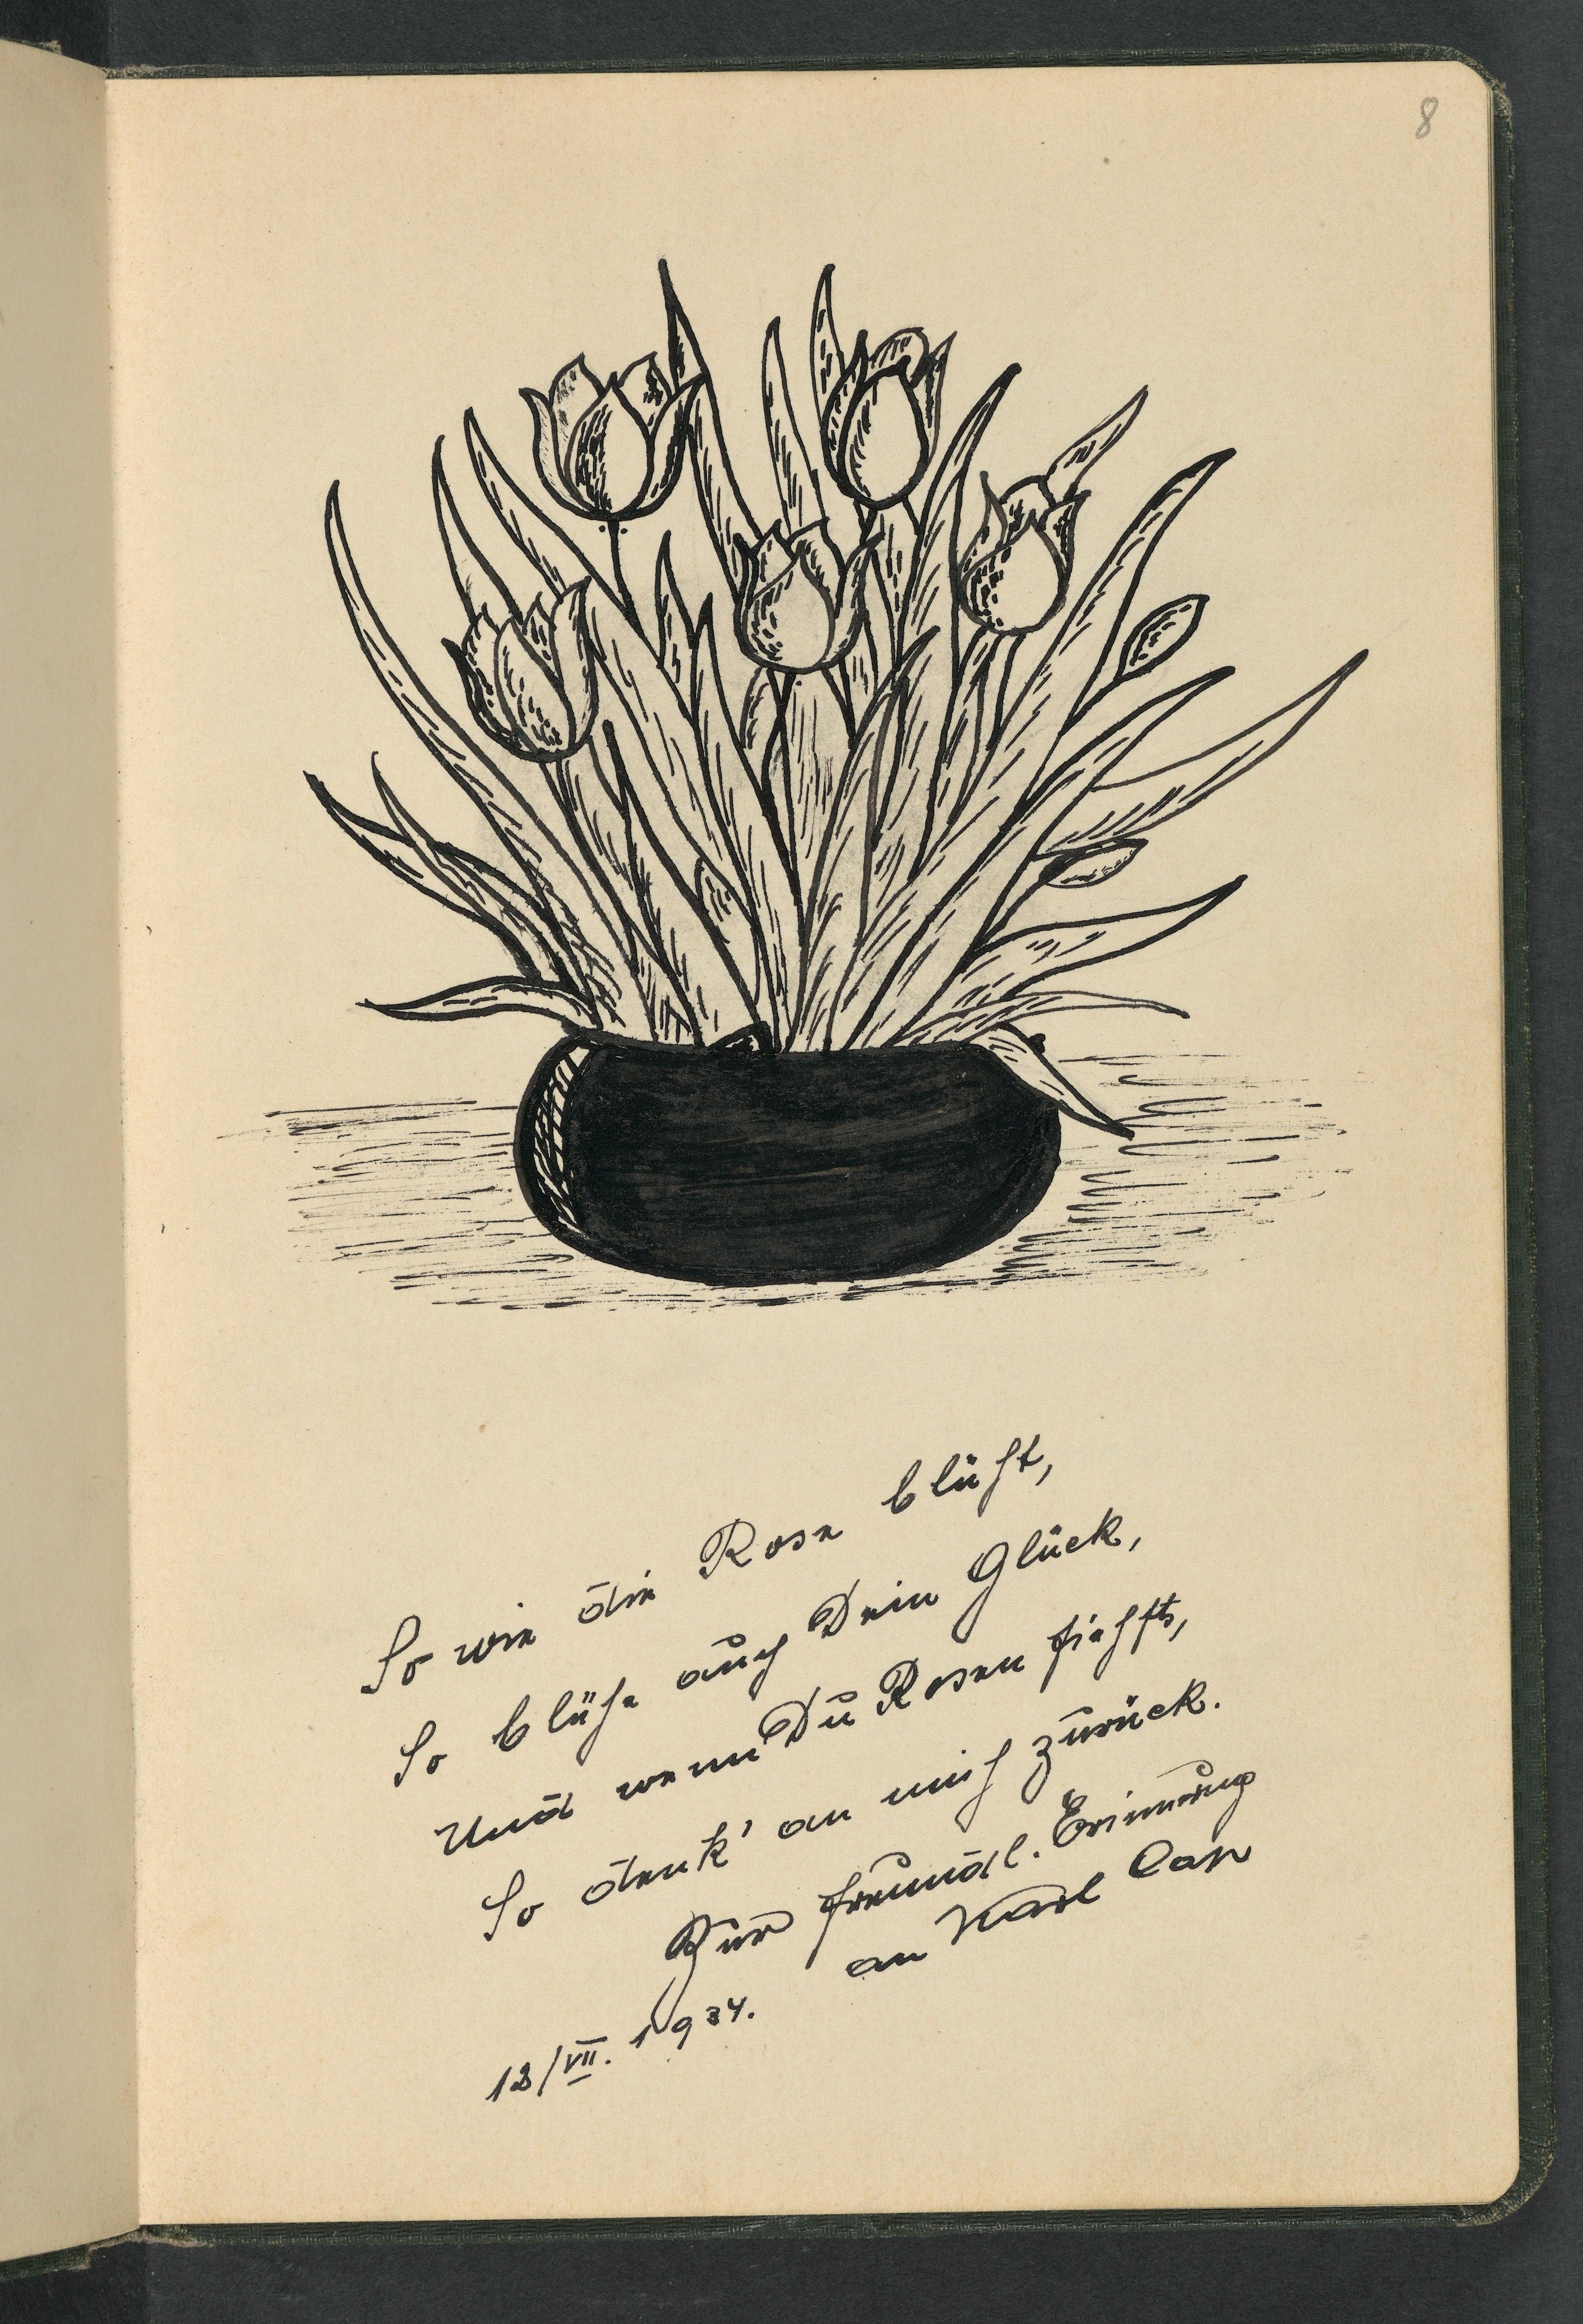 8
So wie die Rose blüht,
So blühe auch Dein Glück,
Und wenn Du Rosen siehst,
So denk' an mich zurück.
Zur freundl. Erinnerung
an Karl
12/VII. 1934.